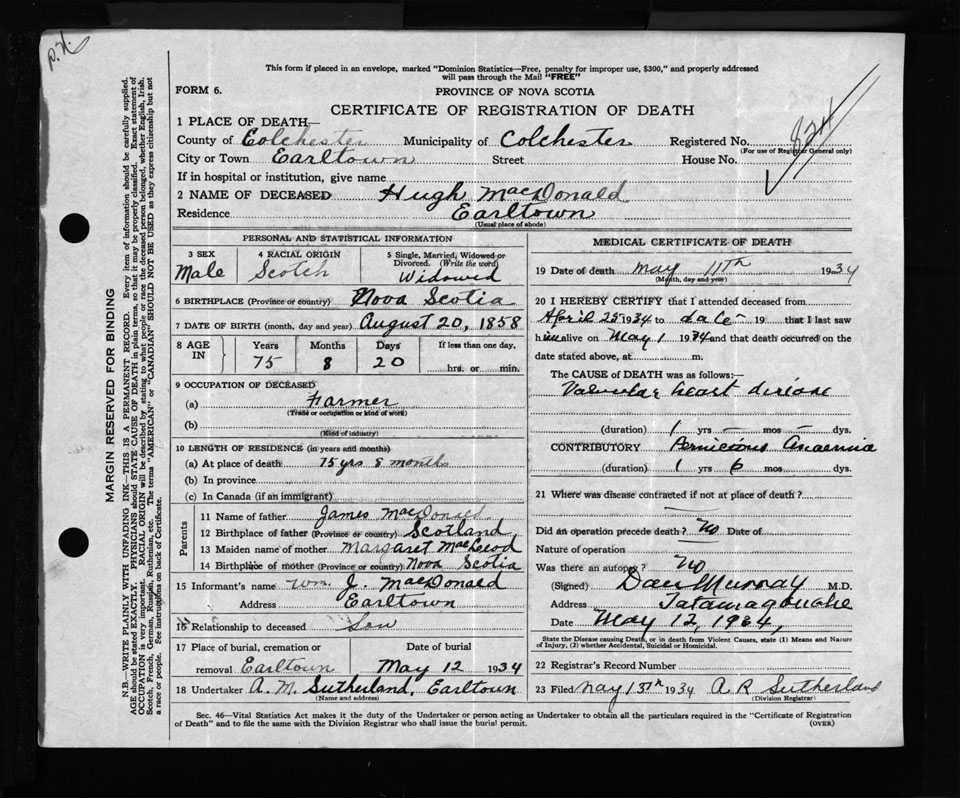 P.X.
This form if placed in an envelope, marked "Dominion Statistics—Free, penalty for improper use, $300," and properly addressed
will pass through the Mail "FREE"
FORM 6.
PROVINCE OF NOVA SCOTIA
CERTIFICATE OF REGISTRATION OF DEATH
1 PLACE OF DEATH—
County of Colchester Municipality of Colchester Registered No.
(For use of Registrar General only)
City or Town Earltown Street House No.
If in hospital or institution, give name
2 NAME OF DECEASED Hugh MacDonald
Residence Earltown
(Usual place of abode)
PERSONAL AND STATISTICAL INFORMATION
3 SEX 4 RACIAL ORIGIN 5 Single, Married, Widowed or
Divorced. (Write the word)
Male Scotch Widowed
6 BIRTHPLACE (Province or country) Nova Scotia
7 DATE OF BIRTH (month, day and year) August 20, 1858
8 AGE IN Years Months Days If less than one day,
75 8 20 hrs. or min.
9 OCCUPATION OF DECEASED
(a) Farmer
(Trade or occupation or kind of work)
(b)
(Kind of industry)
10 LENGTH OF RESIDENCE (in years and months)
(a) At place of death 75 yrs 8 months
(b) In province
(c) In Canada (if an immigrant)
Parents
11 Name of father James MacDonald
12 Birthplace of father (Province or country) Scotland
13 Maiden name of mother Margaret MacLeod
14 Birthplace of mother (Province or country) Nova Scotia
15 Informant's name Wm. J. MacDonald
Address Earltown
16 Relationship to deceased Son
17 Place of burial, cremation or Date of burial
removal Earltown May 12 1934
18 Undertaker A. M. Sutherland, Earltown
(Name and address)
MEDICAL CERTIFICATE OF DEATH
19 Date of death May 11th 1934
(Month, day and year)
20 I HEREBY CERTIFY that I attended deceased from
April 25 1934 to date 19 that I last saw
him alive on May 1 1934 and that death occurred on the
date stated above, at m.
The CAUSE of DEATH was as follows:—
Valvular heart disease
(duration) 1 yrs – mos – dys.
CONTRIBUTORY Pernicious Anaemia
(duration) 1 yrs 6 mos dys.
21 Where was disease contracted if not at place of death?
Did an operation precede death? No Date of
Nature of operation
Was there an autopsy? No
(Signed) Dan Murray M.D.
Address Tatamagouche
Date May 12, 1934,
State the Disease causing Death, or in death from Violent Causes, state (1) Means and Nature
of Injury, (2) whether Accidental, Suicidal or Homicidal.
22 Registrar's Record Number
23 Filed May 15th 1934 A R Sutherland
(Division Registrar)
Sec. 46—Vital Statistics Act makes it the duty of the Undertaker or person acting as Undertaker to obtain all the particulars required in the "Certificate of Registration
of Death" and to file the same with the Division Registrar who shall issue the burial permit. (OVER)
MARGIN RESERVED FOR BINDING
N.B.—WRITE PLAINLY WITH UNFADING INK—THIS IS A PERMANENT RECORD. Every item of information should be carefully supplied.
AGE should be stated EXACTLY. PHYSICIANS should STATE CAUSE OF DEATH in plain terms, so that it may be properly classified. Exact statement of
OCCUPATION is very important. RACIAL ORIGIN will be described by stating to what people or race the deceased person belonged, whether English, Irish,
Scotch, French, German, Russian, Ruthenian, etc. The terms "AMERICAN" or "CANADIAN" SHOULD NOT BE USED as they express citizenship but not
a race or people. See instructions on back of Certificate.